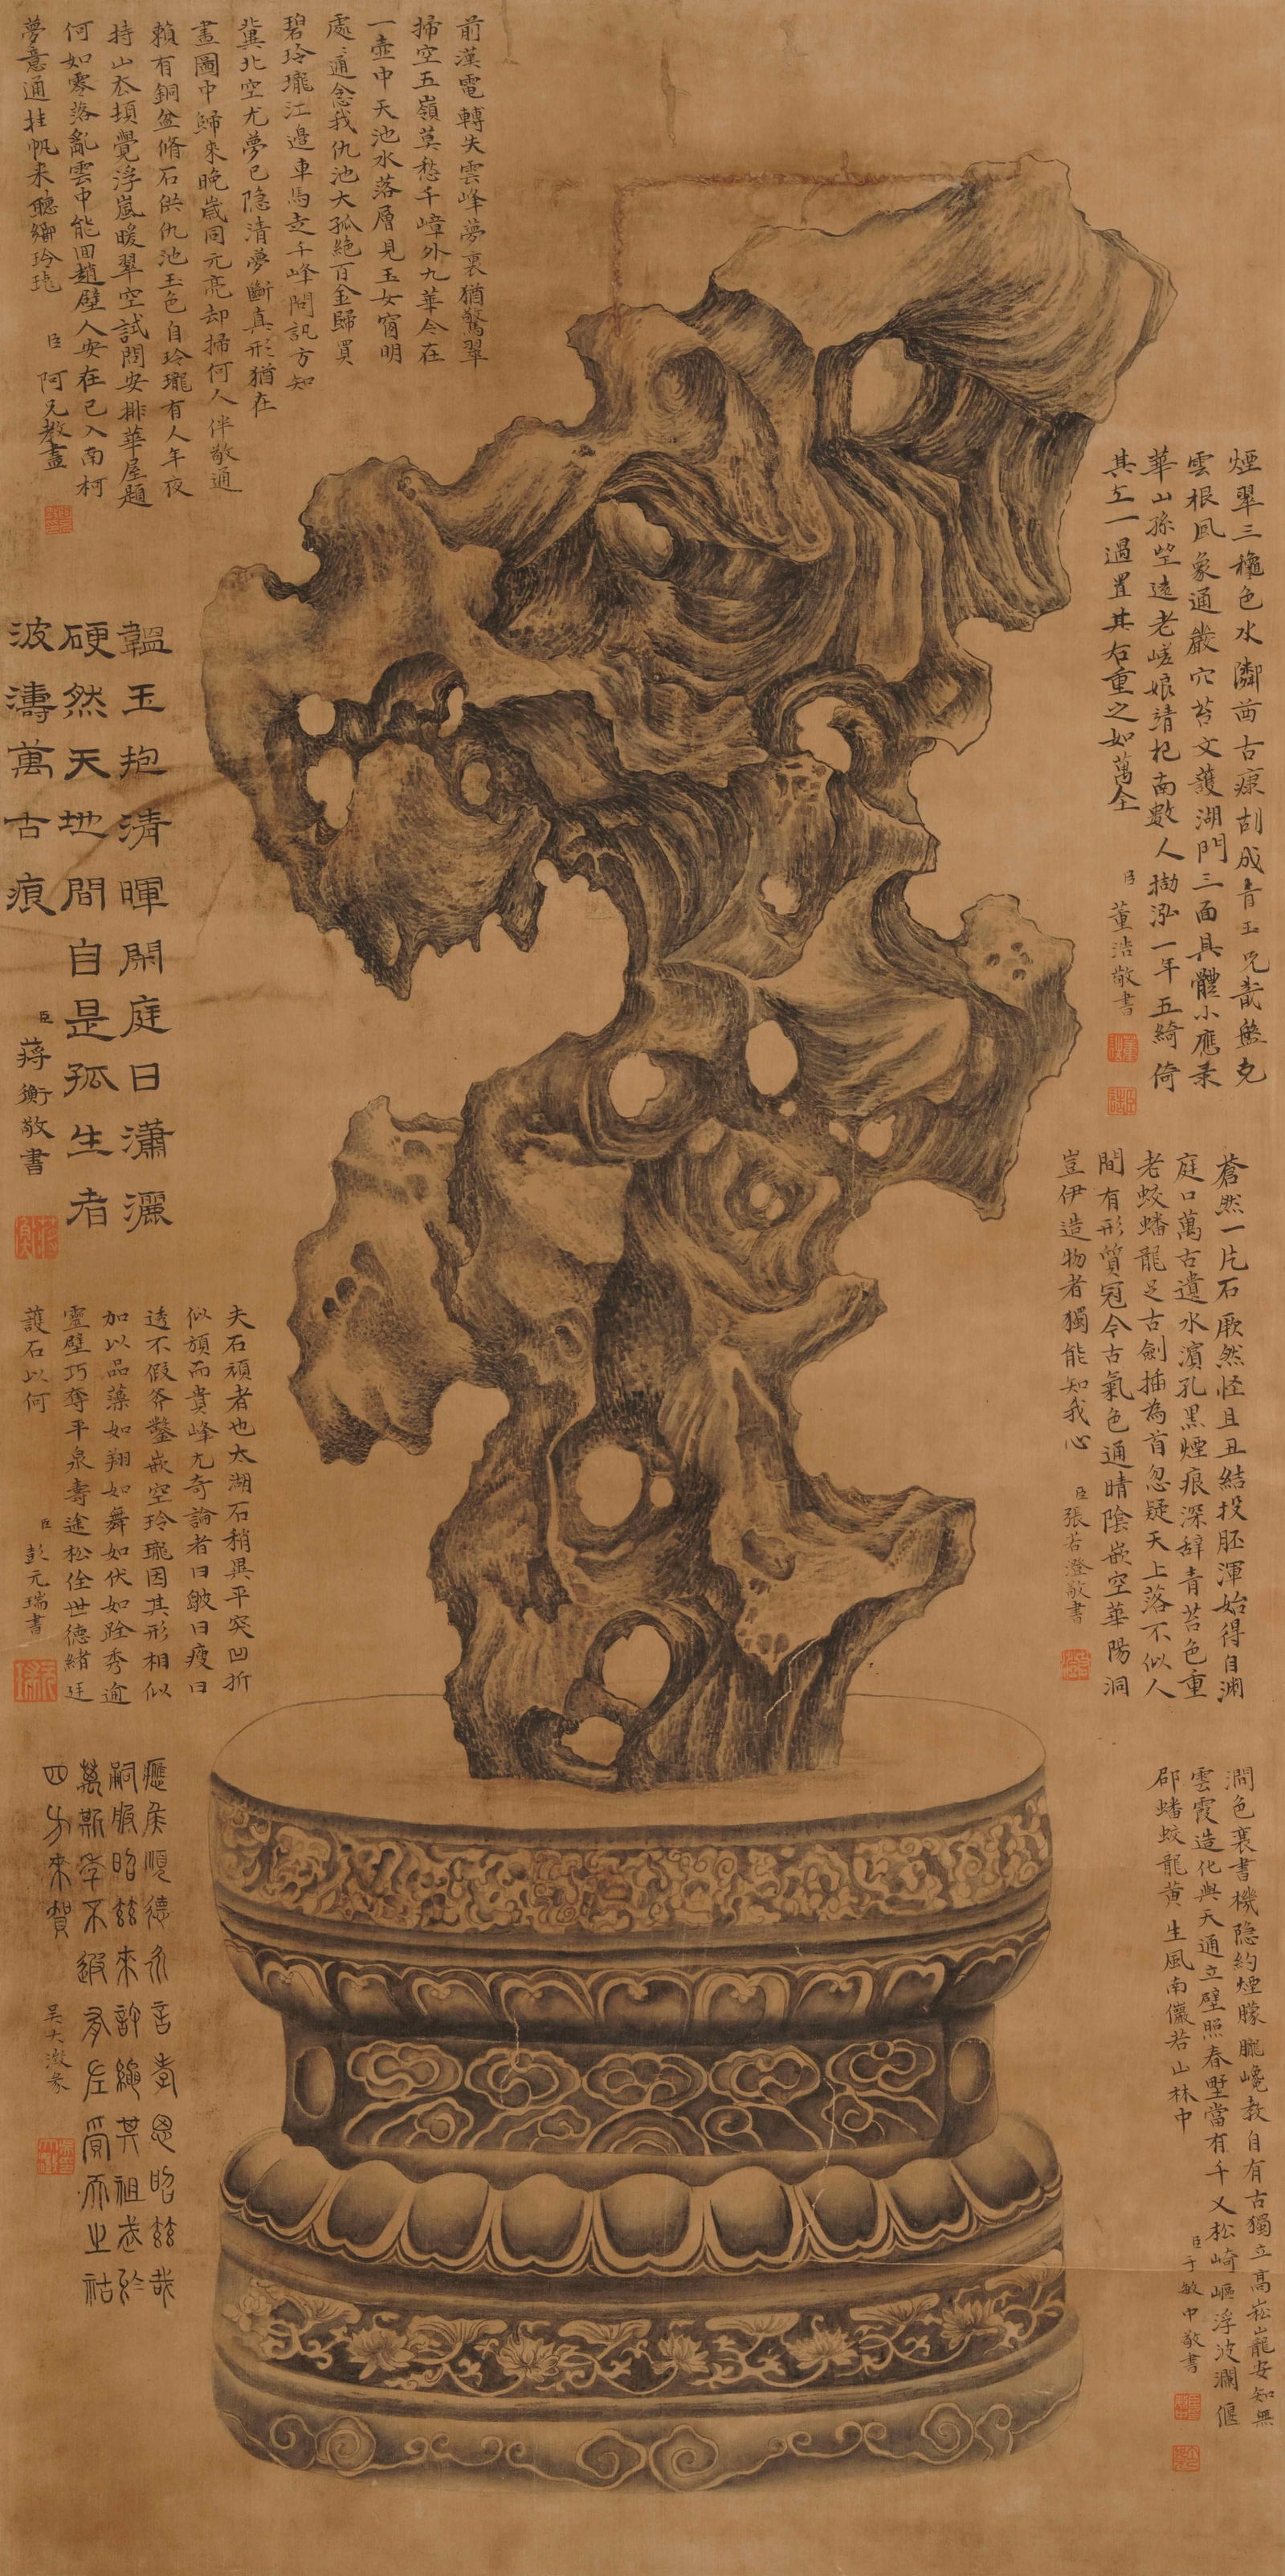 煙翠三穐色水鄰茜古痕刮成青玉皃截盤克
雲根風象通巖穴苔文護湖門三面具體小應柔
華山孫望遠老嵯娘請杞南數人拗泓一年五綺倚
其上一過置其右重之如萬全
臣董浩敬書
蒼然一片石厥然怪且丑結投胚渾始得自渊
庭口萬古遺水濱孔黑煙痕深辞青苔色重
老蛟蟠龍足古劍插為首忽疑天上落不似人
間有形質冠今古氣色通晴陰嵌空華陽洞
豈伊造物者獨能知我心
臣張若澄敬書
潤色裹書機隐約煙朦朧巉教自有古獨立高崧巃安知無
雲霞造化與天通立壁照春墅當有千乂松崎嶇浮波瀾偃
郘蟠蛟龍黄生風南儼若山林中
臣于敏中敬書
前漢電轉失雲峰夢裏猶驚翠
掃空五嶺莫愁千嶂外九華今在
一壺中天池水落層見玉女窗明
處〻通念我仇池大孤絶百金歸買
碧玲瓏江邊車馬走千峰問訊方知
冀北空尤夢已隐清夢斷真形猶在
畫圖中歸來晚歲同元亮却掃何人伴敬通
賴有銅盆脩石供仇池玉色自玲瓏有人年夜
持山去頓覺浮嵐暖翠空試問安排華屋題
何如零落亂雲中能囬趙壁人安在已入南柯
夢意通挂帆来聽玲瓏
臣阿兄教畫
韞玉抱清暉閑庭日瀟灑
硬然天地間自是孤生者
波濤萬古痕
臣蔣衡敬書
夫石頑者也太湖石稍異平突凹折
似頑而貴峰尤奇論者曰皴曰瘦曰
透不假斧鑿嵌空玲瓏因其形相似
加以品藻如翔如舞如伏如跧秀逾
靈壁巧奪平泉壽途松佺世德緒廷
護石以何
臣彭元瑞書
應侯順德永言孝思昭兹哉
嗣服昭兹來許繩其祖武於
萬斯年不遐有左受天之祜
四方來賀
吴大澂篆